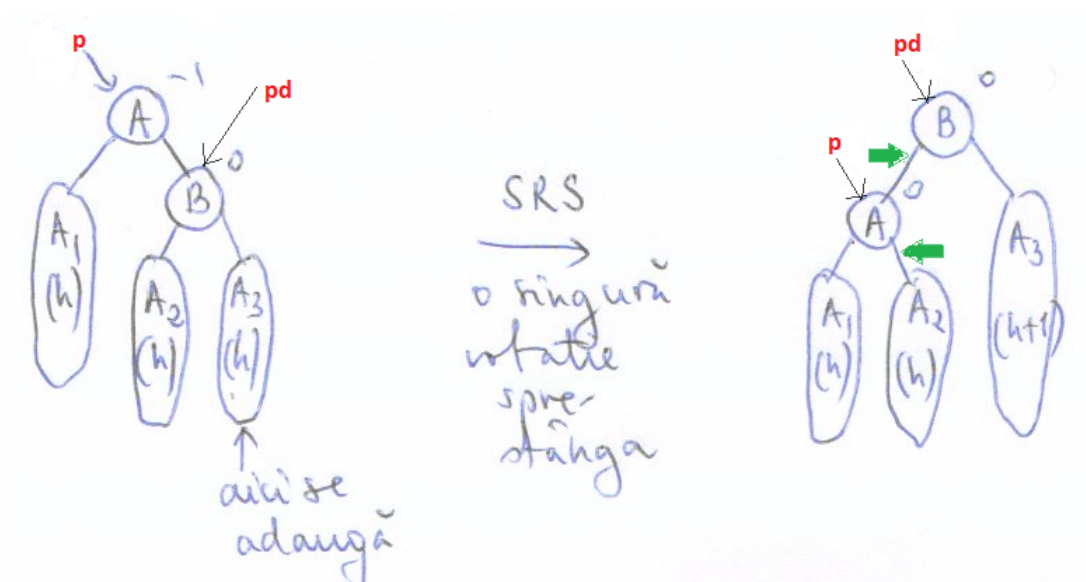 p
A -1
pd
B 0
A1
(h)
A2
(h)
A3
(h)
aici se
adaugă
SRS
o singură
rotatie
spre-
stânga
pd
B 0
p
A 0
A1
(h)
A2
(h)
A3
(h+1)